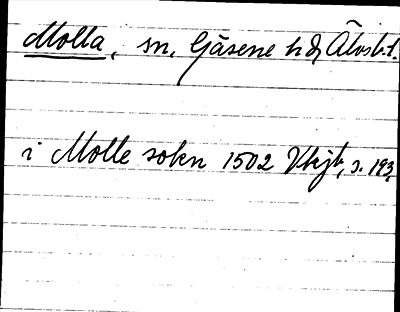 Molla, sn, Gäsene hd, Älvsb. l.
i Molle sokn 1502 Vhjb, s. 193.